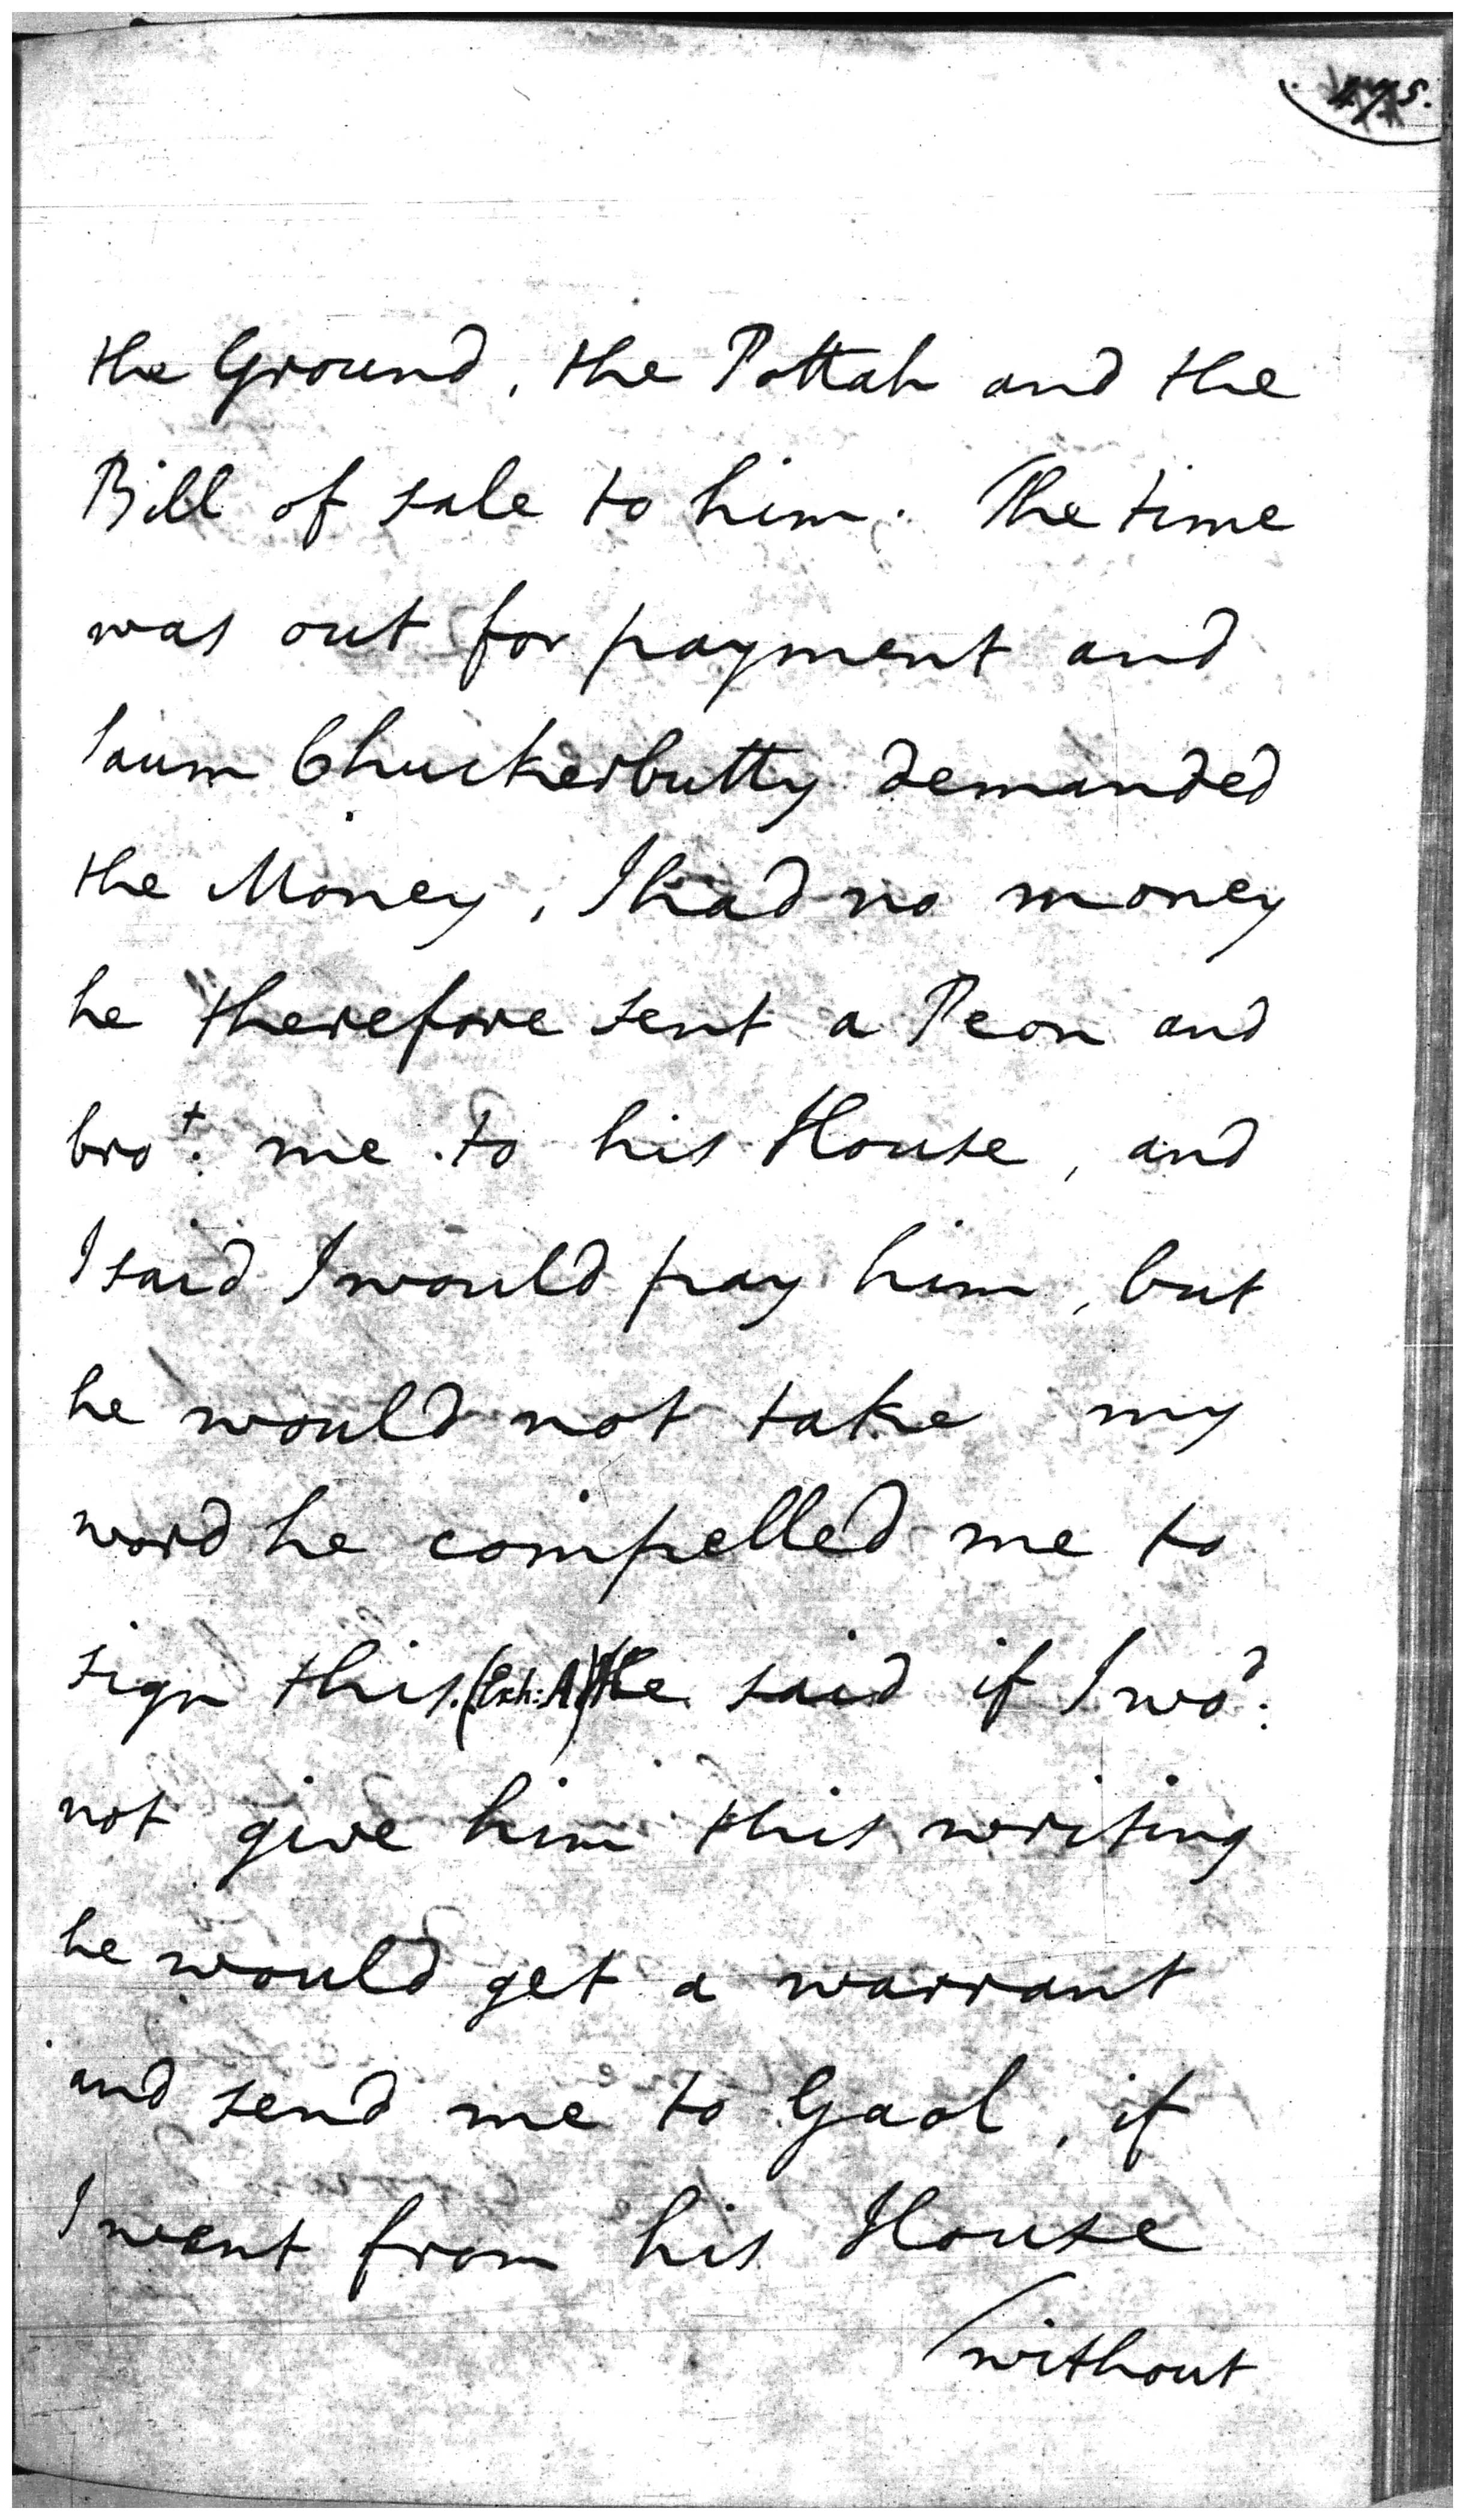 the Ground, the Pottah and the
Bill of sale to him. The time
was out for payment and
Chuckerbutty demanded
the Money, I had no money
he therefore sent a Peon and
bro.t me to his House, and
I said I would pay him, but
he would not take my
word he compelled me to
sign this. (Exh: A) He said if I wo.d
not give him this writing
he would get a warrant
and send me to Gaol, if
I went from his House
without